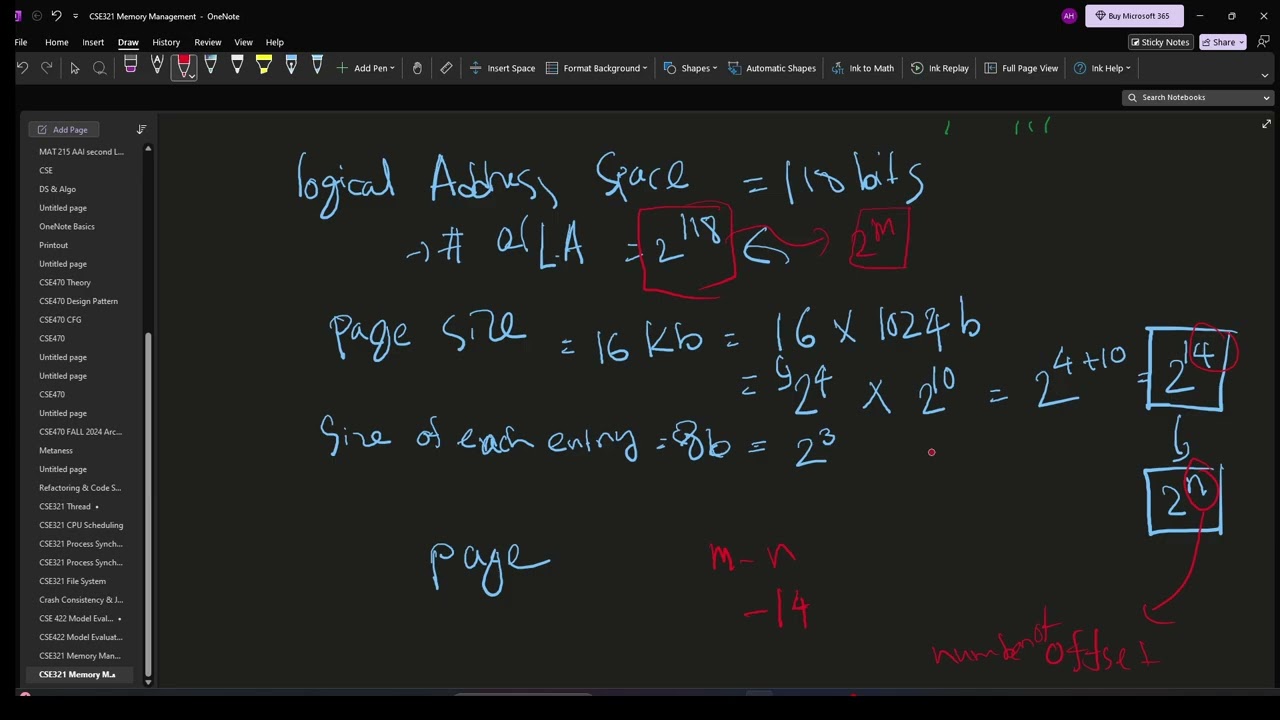 CSE321 Memory Management - OneNote
AH
Buy Microsoft 365
File Home Insert Draw History Review View Help
Sticky Notes
Share
Add Pen
Insert Space
Format Background
Shapes
Automatic Shapes
Ink to Math
Ink Replay
Full Page View
Ink Help
Search Notebooks
Add Page
MAT 215 AAI second L...
CSE
DS & Algo
Untitled page
OneNote Basics
Printout
Untitled page
CSE470 Theory
CSE470 Design Pattern
CSE470 CFG
CSE470
Untitled page
Untitled page
CSE470
Untitled page
CSE470 FALL 2024 Arc...
Metaness
Untitled page
Refactoring & Code S...
CSE321 Thread
CSE321 CPU Scheduling
CSE321 Process Synch...
CSE321 Process Synch...
CSE321 File System
Crash Consistency & J...
CSE 422 Model Eval...
CSE422 Model Evaluat...
CSE321 Memory Man...
CSE321 Memory M...
logical Address Space = 118 bits
→ # of L.A = 2^118 → 2^m
page size = 16 Kb = 16 × 1024 b
= 2^4 × 2^10 = 2^4+10 = 2^14
Size of each entry = 8b = 2^3
2^n
page m - n
-14
number of offset